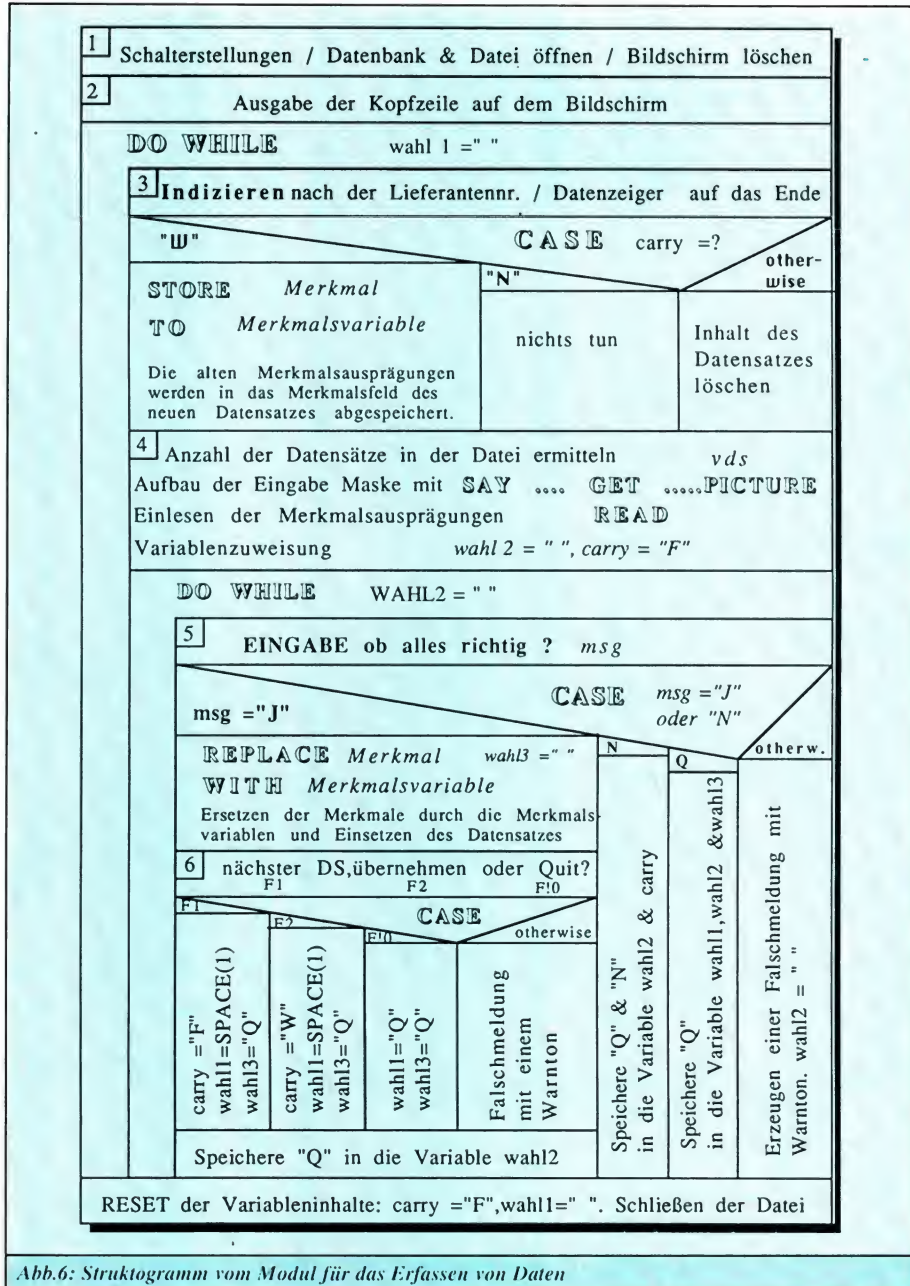 1 Schalterstellungen / Datenbank & Datei öffnen / Bildschirm löschen
2 Ausgabe der Kopfzeile auf dem Bildschirm
DO WHILE wahl 1 =" "
3 Indizieren nach der Lieferantennr. / Datenzeiger auf das Ende
CASE carry =?
"W"
STORE Merkmal
TO Merkmalsvariable
Die alten Merkmalsausprägungen
werden in das Merkmalsfeld des
neuen Datensatzes abgespeichert.
"N"
nichts tun
other-
wise
Inhalt des
Datensatzes
löschen
4 Anzahl der Datensätze in der Datei ermitteln vds
Aufbau der Eingabe Maske mit SAY .... GET .....PICTURE
Einlesen der Merkmalsausprägungen READ
Variablenzuweisung wahl 2 = " ", carry = "F"
DO WHILE WAHL2 = " "
5 EINGABE ob alles richtig ? msg
CASE msg ="J"
oder "N"
msg ="J"
REPLACE Merkmal wahl3 =" "
WITH Merkmalsvariable
Ersetzen der Merkmale durch die Merkmals-
variablen und Einsetzen des Datensatzes
6 nächster DS,übernehmen oder Quit?
F1 F2 F!0
CASE
F1
carry ="F"
wahl1=SPACE(1)
wahl3="Q"
F2
carry ="W"
wahl1=SPACE(1)
wahl3="Q"
F!0
wahl1="Q"
wahl3="Q"
otherwise
Falschmeldung
mit einem
Warnton
Speichere "Q" in die Variable wahl2
N
Speichere "Q" & "N"
in die Variable wahl2 & carry
Q
Speichere "Q"
in die Variable wahl1,wahl2 &wahl3
otherw.
Erzeugen einer Falschmeldung mit
Warnton. wahl2 = " "
RESET der Variableninhalte: carry ="F",wahl1=" ". Schließen der Datei
Abb.6: Struktogramm vom Modul für das Erfassen von Daten